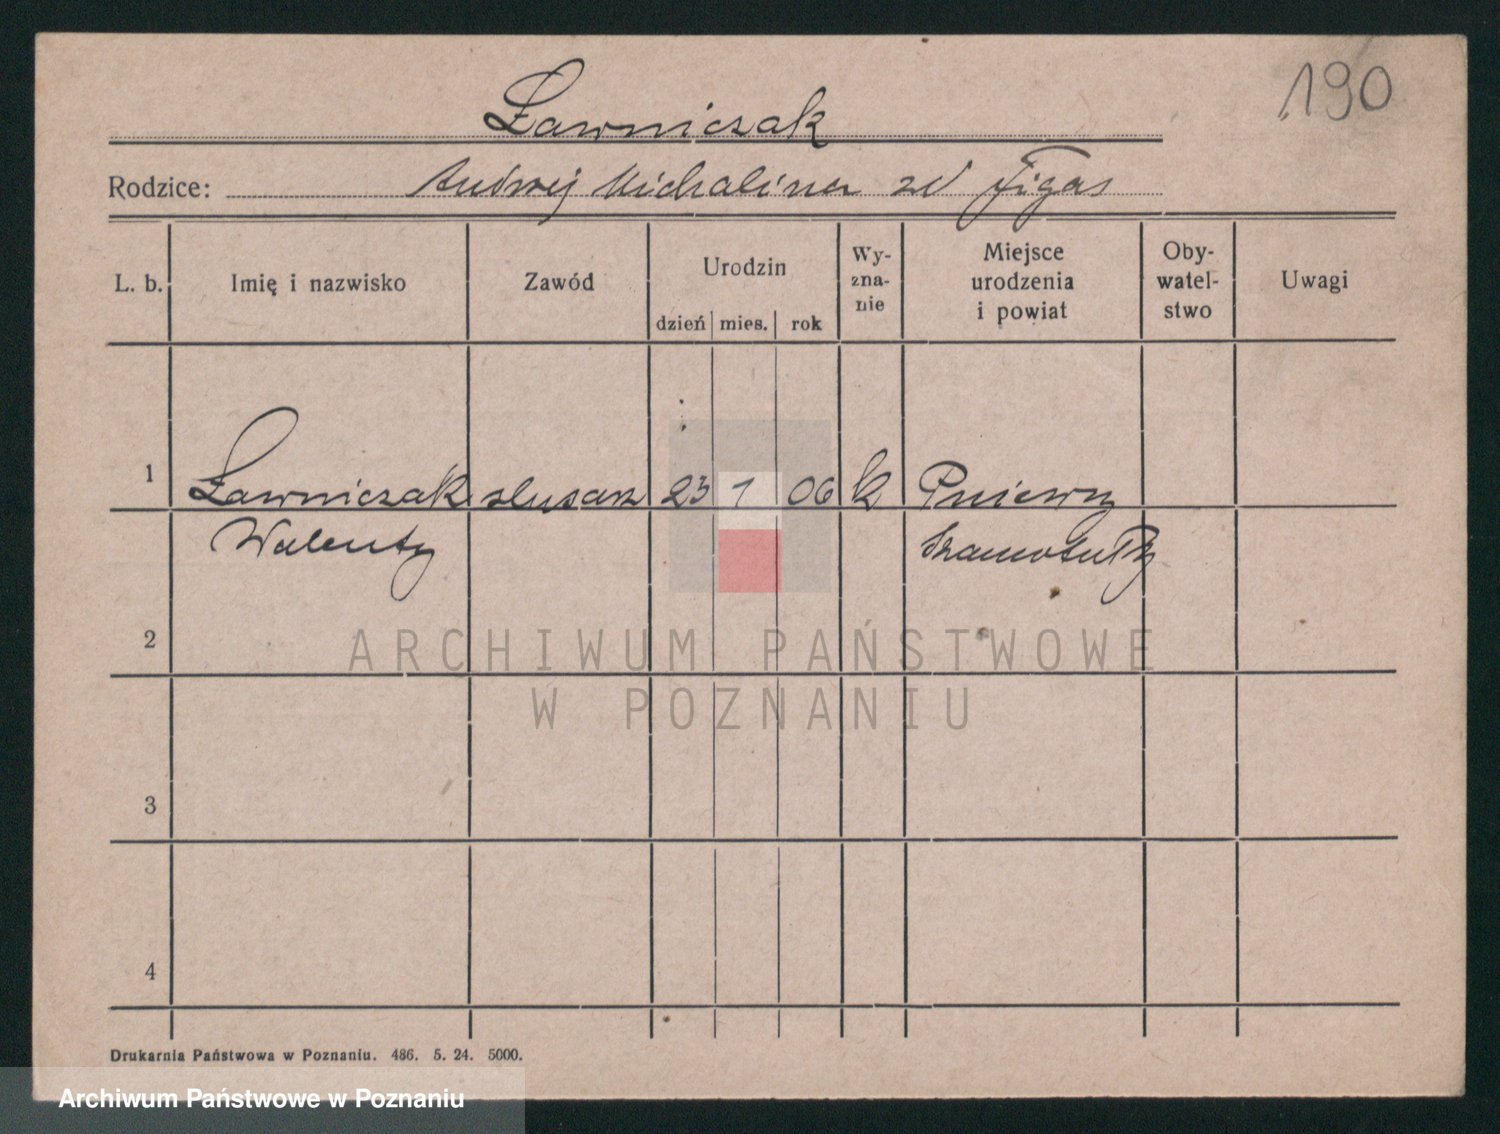 190
Ławniczak
Rodzice: Andrzej Michalina zd Figas
L. b. Imię i nazwisko Zawód Urodzin dzień mies. rok Wy-zna-nie Miejsce urodzenia i powiat Oby-watel-stwo Uwagi
1 Ławniczak ślusarz 23 1 06 k Pniewy
Walenty Szamotuły
2
ARCHIWUM PAŃSTWOWE
W POZNANIU
3
4
Drukarnia Państwowa w Poznaniu. 486. 5. 24. 5000.
Archiwum Państwowe w Poznaniu